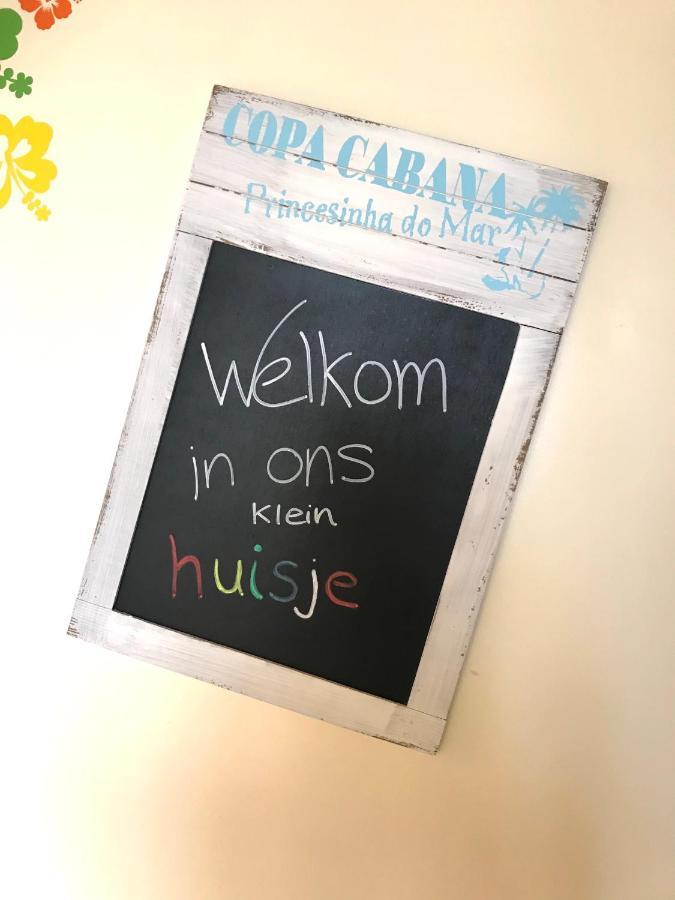 COPA CABANA
Princesinha do Mar
Welkom
in ons
klein
huisje